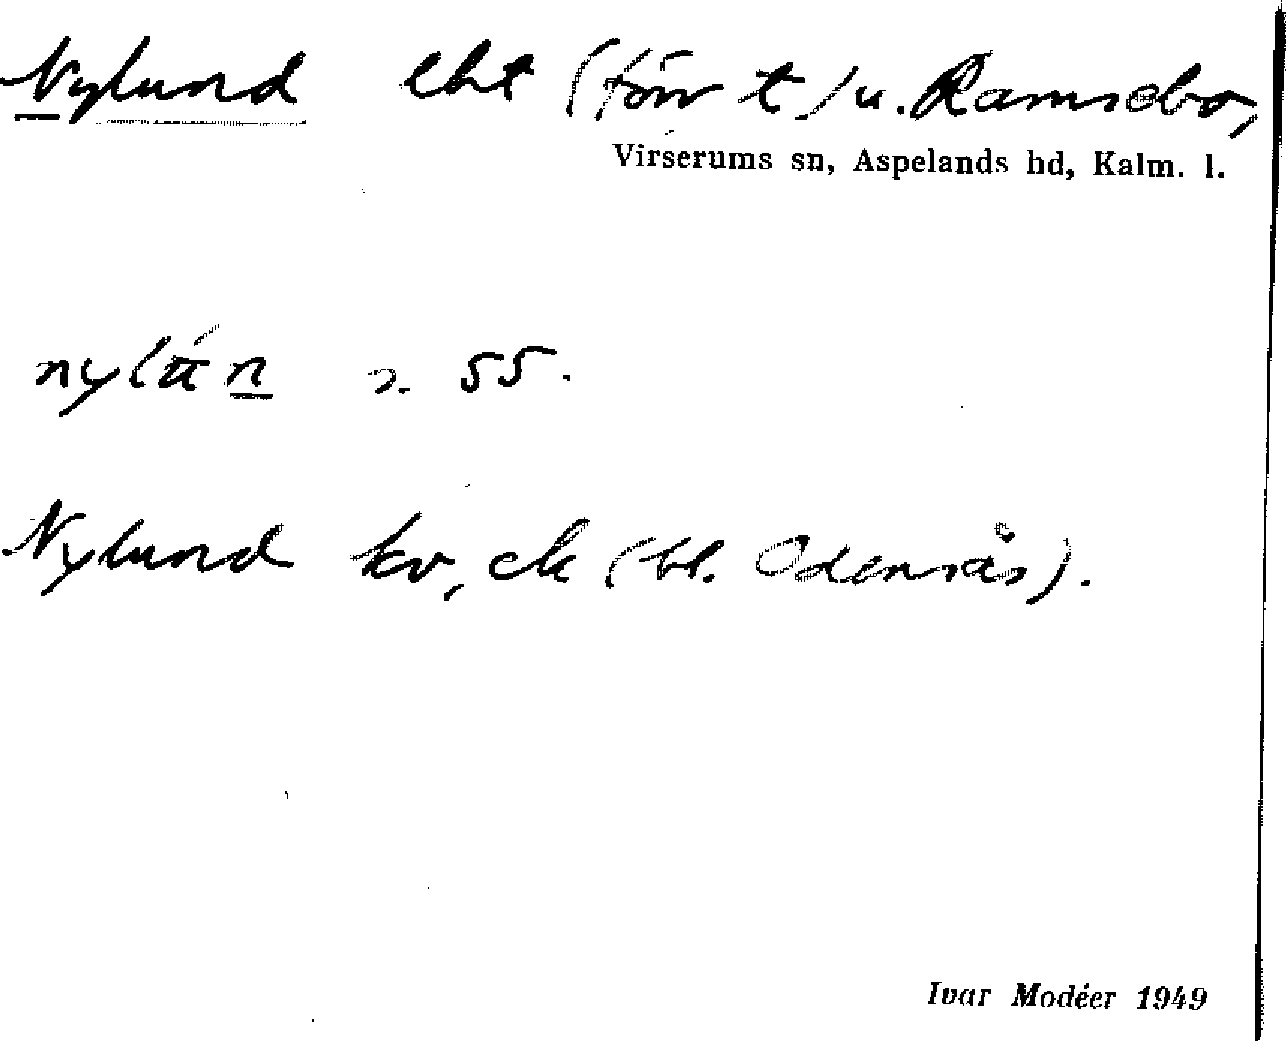 Nylund lht (förr t) u. Ramsebo,
Virserums sn, Aspelands hd, Kalm. l.
55.
Nylund kv, ek (bl. Odensås).
Ivar Modéer 1949